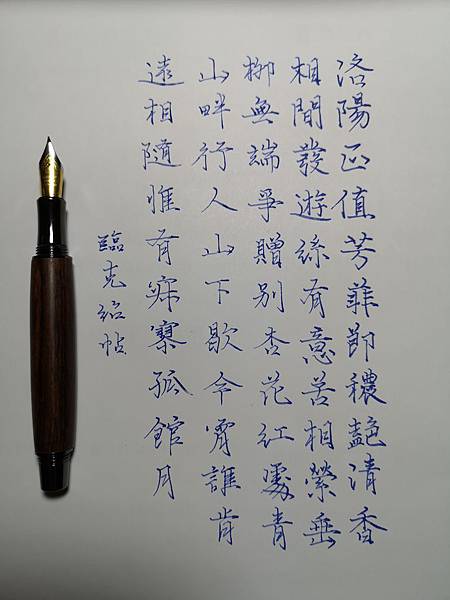 洛陽正值芳菲節穠艷清香
相間發遊絲有意苦相縈垂
柳無端爭贈別杏花紅處青
山畔行人山下歇今宵誰肯
遠相隨惟有寂寞孤館月
臨克紹帖